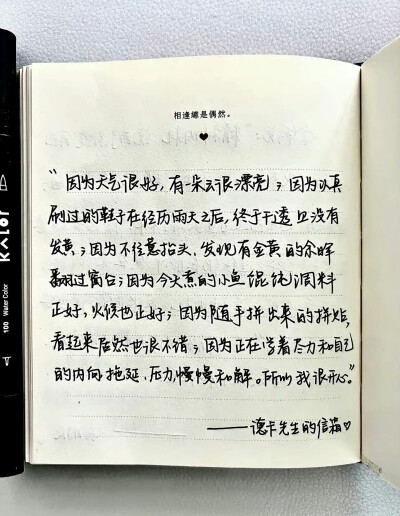 相逢總是偶然。
♥
“因为天气很好，有一朵云很漂亮；因为认真
刷过的鞋子在经历雨天之后，终于干透且没有
发黄；因为不经意抬头，发现有金黄的余晖
翻过窗台；因为今天煮的小鱼馄饨调料
正好，火候也正好；因为随手拼出来的拼贴，
看起来居然也很不错；因为正在尝着尽力和自己
的内向、拖延、压力，慢慢和解。所以我很开心。”
——德卡先生的信箱♡
KALOr
100 Water Color